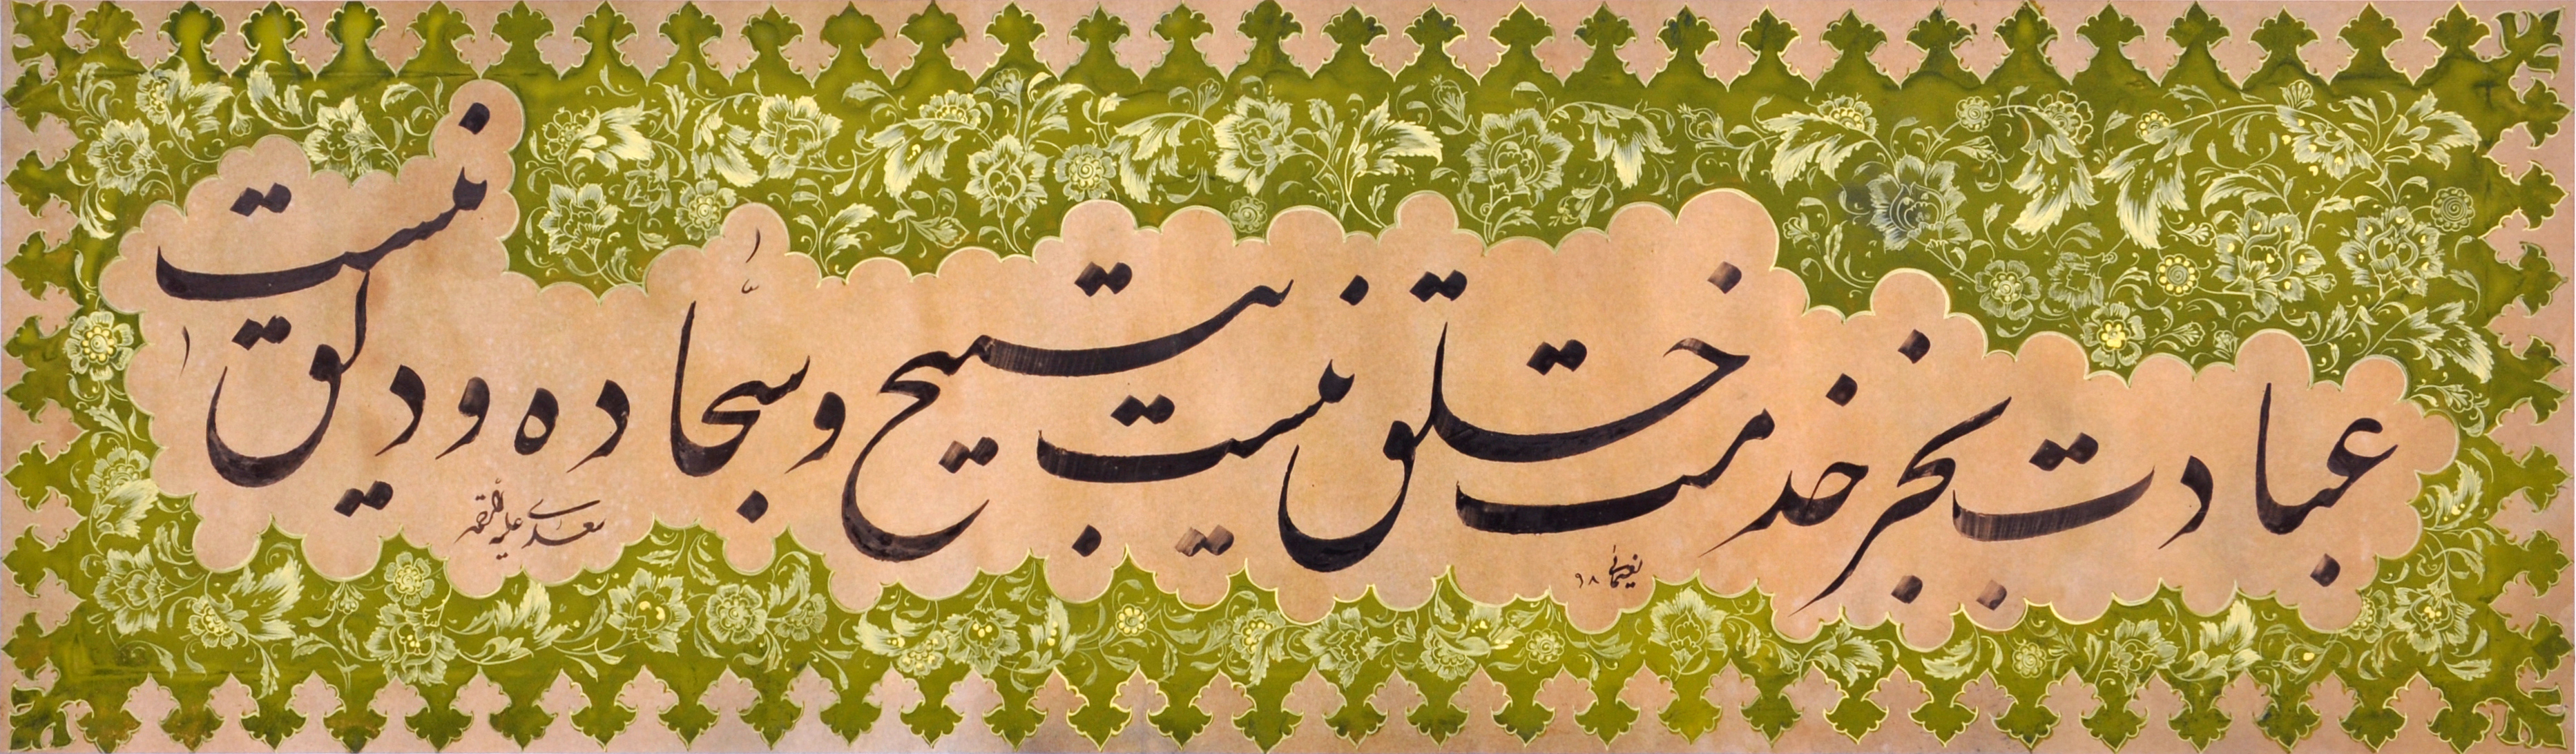 عبادت بجز خدمت خلق نیست
بتسبیح و سجّاده و دلق نیست
سعدی علیه الرحمه